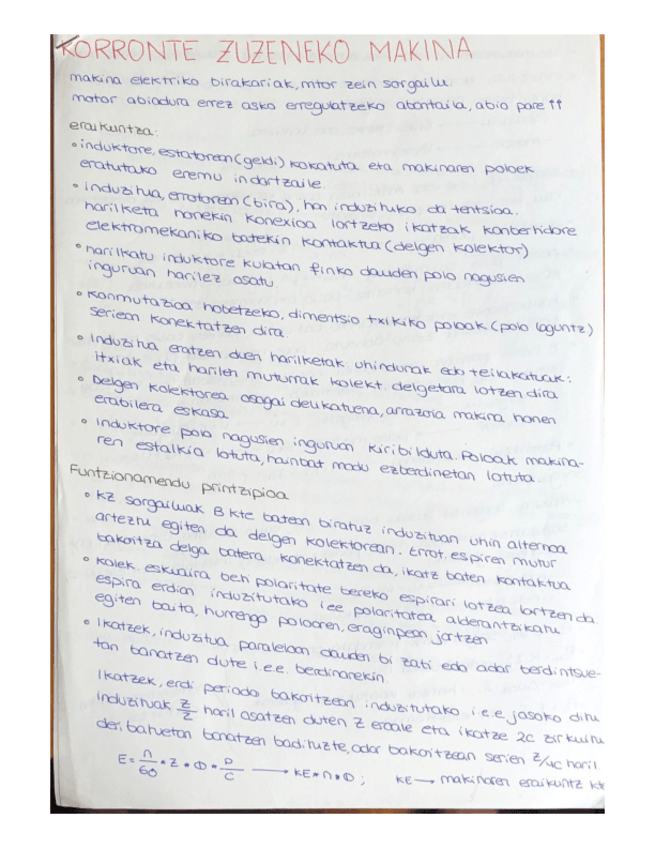 KORRONTE ZUZENEKO MAKINA
makina elektriko birakariak, mtor zein sorgailu.
motor abiadura errez asko erregulatzeko abantaila, abio pare ↑↑
eraikuntza:
• induktore, estatorean (geldi) kokatuta eta makinaren poloek
eratutako eremu indartzaile.
• induzitua, errotorean (bira), han induzituko da tentsioa.
harilketa honekin konexioa lortzeko ikatzak konbertidore
elektromekaniko batekin kontaktua (delgen kolektor)
• harilkatu induktore kulatan finko dauden polo nagusien
inguruan harilez osatu.
• Konmutazioa hobetzeko, dimentsio txikiko poloak (polo laguntz)
seriean konektatzen dira.
• Induzitua eratzen duen harilketak uhindunak edo teilakatuak:
itxiak eta harilen muturrak kolekt. delgetara lotzen dira
• Delgen kolektorea osagai delikatuena, arrazoia makina honen
erabilera eskasa.
• Induktore polo nagusien inguruan kiribilduta. Poloak makina-
ren estalkia lotuta, hainbat modu ezberdinetan lotuta.
Funtzionamendu printzipioa
• KZ sorgailuak B kte batean biratuz induzituan uhin alternoa
arteztu egiten da delgen kolektorean. Errot. espiren mutur
bakoitza delga batera konektatzen da, ikatz baten kontaktua
• Kolek. eskuaira beti polaritate bereko espirari lotzea lortzen da
espira erdian induzitutako iee polaritatea alderantzikatu
egiten baita, hurrengo poloaren, eraginpean jartzen
• Ikatzek, induzitua paraleloan dauden bi zati edo adar berdintsue-
tan banatzen dute i.e.e. berdinarekin.
Ikatzek, erdi periodo bakoitzean induzitutako i.e.e jasoko ditu
Induzituak Z/2 haril osatzen duten Z eroale eta ikatze 2c zirkuitu
deribatuetan banatzen badituzte, adar bakoitzean serien Z/4c haril.
E = n/60 * Z * Φ * p/c → KE * n * Φ ; KE → makinaren eraikuntz kte